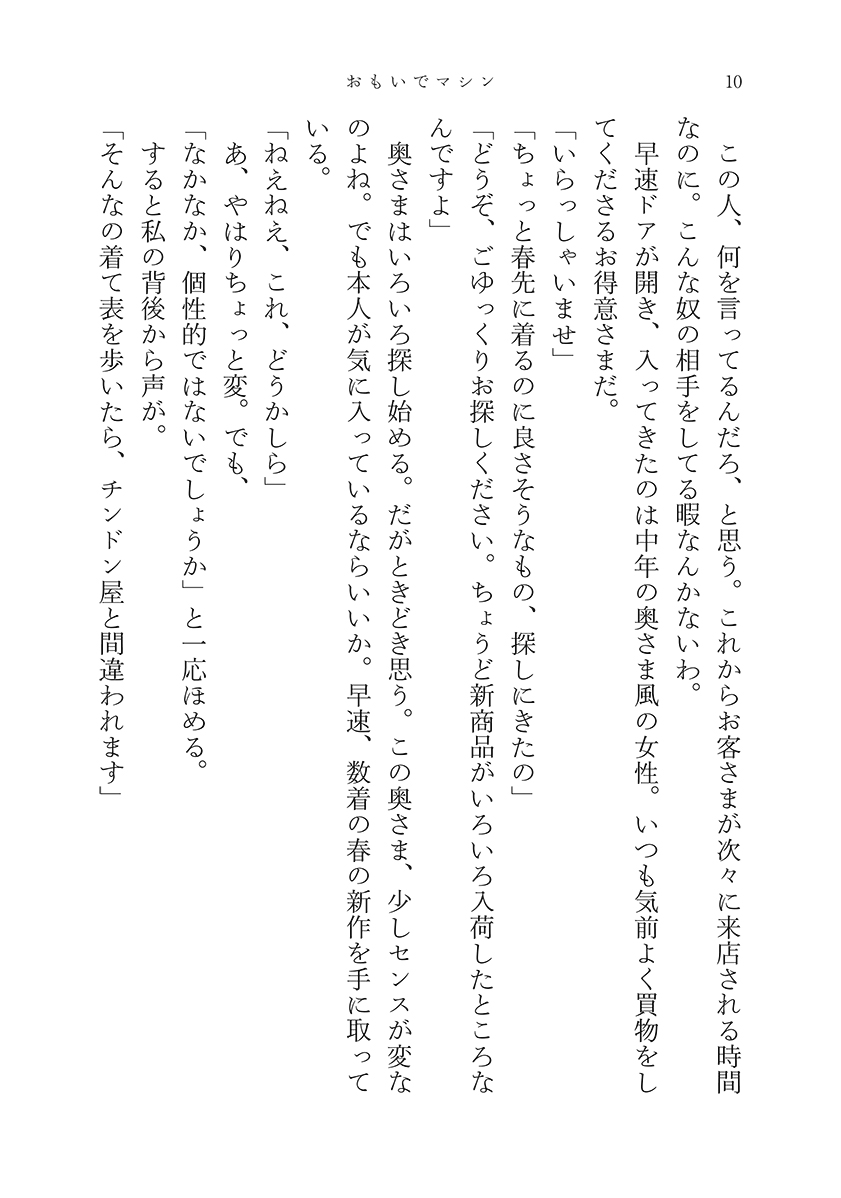 おもいでマシン
10
この人、何を言ってるんだろ、と思う。これからお客さまが次々に来店される時間
なのに。こんな奴の相手をしてる暇なんかないわ。
早速ドアが開き、入ってきたのは中年の奥さま風の女性。いつも気前よく買物をし
てくださるお得意さまだ。
「いらっしゃいませ」
「ちょっと春先に着るのに良さそうなもの、探しにきたの」
「どうぞ、ごゆっくりお探しください。ちょうど新商品がいろいろ入荷したところな
んですよ」
奥さまはいろいろ探し始める。だがときどき思う。この奥さま、少しセンスが変な
のよね。でも本人が気に入っているならいいか。早速、数着の春の新作を手に取って
いる。
「ねえねえ、これ、どうかしら」
あ、やはりちょっと変。でも、
「なかなか、個性的ではないでしょうか」と一応ほめる。
すると私の背後から声が。
「そんなの着て表を歩いたら、チンドン屋と間違われます」